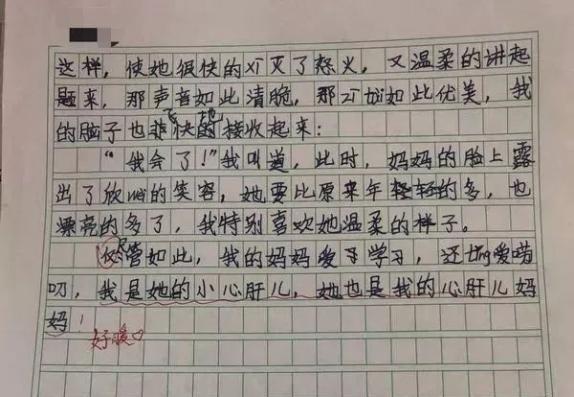 这样，使她很快的xī灭了怒火，又温柔的讲起
题来，那声音如此清脆，那zī tài如此优美，我
的脑子也飞快地接收起来：
“我会了！”我叫道，此时，妈妈的脸上露
出了欣wèi的笑容，她要比原来年轻的多，也
漂亮的多了，我特别喜欢她温柔的样子。
尽管如此，我的妈妈爱学习，还tǐng爱唠
叨，我是她的小心肝儿，她也是我的心肝儿妈
妈！
好暖